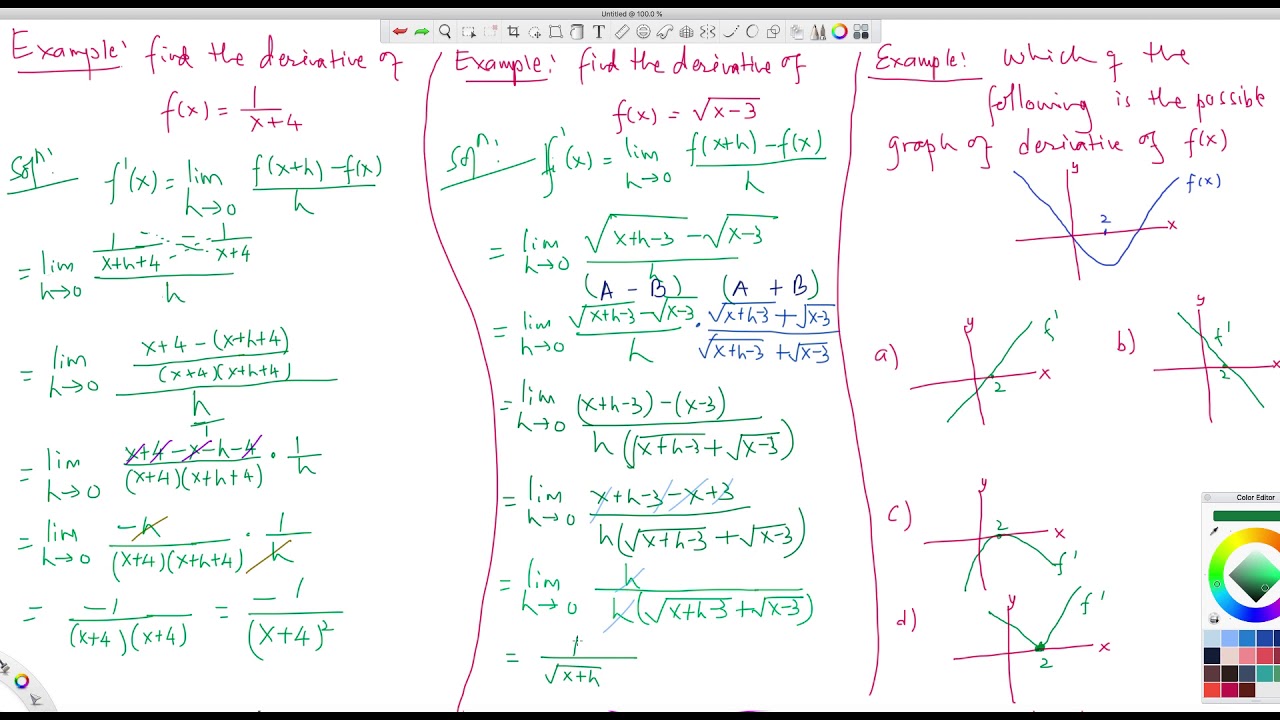 Untitled @ 100.0 %
Example: find the derivative of
f(x) = 1/(x+4)
Solⁿ:
f'(x) = lim h→0 (f(x+h) − f(x))/h
= lim h→0 (1/(x+h+4) − 1/(x+4))/h
= lim h→0 ((x+4 − (x+h+4))/((x+4)(x+h+4)))/(h/1)
= lim h→0 (x+4−x−h−4)/((x+4)(x+h+4)) · 1/h
= lim h→0 −h/((x+4)(x+h+4)) · 1/h
= −1/((x+4)(x+4)) = −1/(x+4)²
Example: find the derivative of
f(x) = √(x−3)
Solⁿ: f'(x) = lim h→0 (f(x+h) − f(x))/h
= lim h→0 (√(x+h−3) − √(x−3))/h
(A − B) (A + B)
= lim h→0 (√(x+h−3) − √(x−3))/h · (√(x+h−3) + √(x−3))/(√(x+h−3) + √(x−3))
= lim h→0 ((x+h−3) − (x−3))/(h(√(x+h−3) + √(x−3)))
= lim h→0 (x+h−3−x+3)/(h(√(x+h−3) + √(x−3)))
= lim h→0 h/(h(√(x+h−3) + √(x−3)))
= 1/√(x+h)
Example: which of the
following is the possible
graph of derivative of f(x)
y
f(x)
2
x
a)
y
f'
x
2
b)
y
f'
2
x
c)
y
2
x
f'
d)
y
f'
x
2
Color Editor